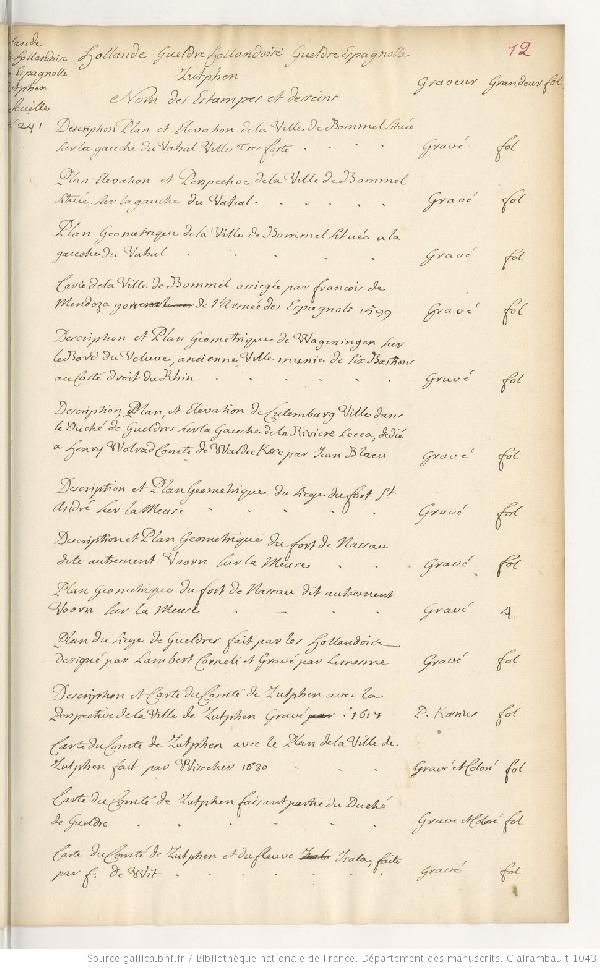 Hollande Gueldre hollandoise Gueldre Espagnolle
Zutphen
12
Nom des Estampes et desseins
Graveur Grandeur fol.
Description Plan et Elevation de la Ville de Bommel située
sur la gauche du Vahal Ville Tres forte Gravé fol
Plan Elevation et Perspective de la Ville de Bommel
située sur la gauche du Vahal. Gravé fol
Plan Geometrique de la Ville de Bommel située a la
gauche du Vahal Gravé fol
Carte de la Ville de Bommel assiegée par francois de
Mendoza de l'Armée des Espagnols 1599 Gravé fol
Description et Plan Geometrique de Wageningen sur
le Bord du Veluve, ancienne Ville munie de six Bastions
au Costé droit du Rhin Gravé fol
Description, Plan, et Elevation de Culemburg Ville dans
le Duché de Gueldres sur la Gauche de la Riviere Lecca, dedié
a Henry Wolrad Comte de Waldeck par Jean Blaeu Gravé fol
Description et Plan Geometrique du siege du fort St
André sur la Meuse Gravé fol
Description et Plan Geometrique du fort de Nassau
dite autrement Voorn sur la Meuse Gravé fol
Plan Geometrique du fort de Nassau dit autrement
Voorn sur la Meuse Gravé 4
Plan du siege de Gueldres fait par les hollandois
designé par Lambert Corneli et Gravé par Gravé fol
Description et Carte du Comté de Zutphen avec la
Perspective de la Ville de Zutphen Gravé 1617 P. Kærius fol
Carte du Comté de Zutphen avec le Plan de la Ville de
Zutphen fait par Visscher 1630 Gravé et Coloré fol
Carte du Comté de Zutphen faisant partie du Duché
de Gueldre Gravé et Coloré fol
Carte du Comté de Zutphen et du fleuve Isala, faite
par f. de Wit Gravé fol
Source gallica.bnf.fr / Bibliothèque nationale de France. Département des manuscrits. Clairambault 1043